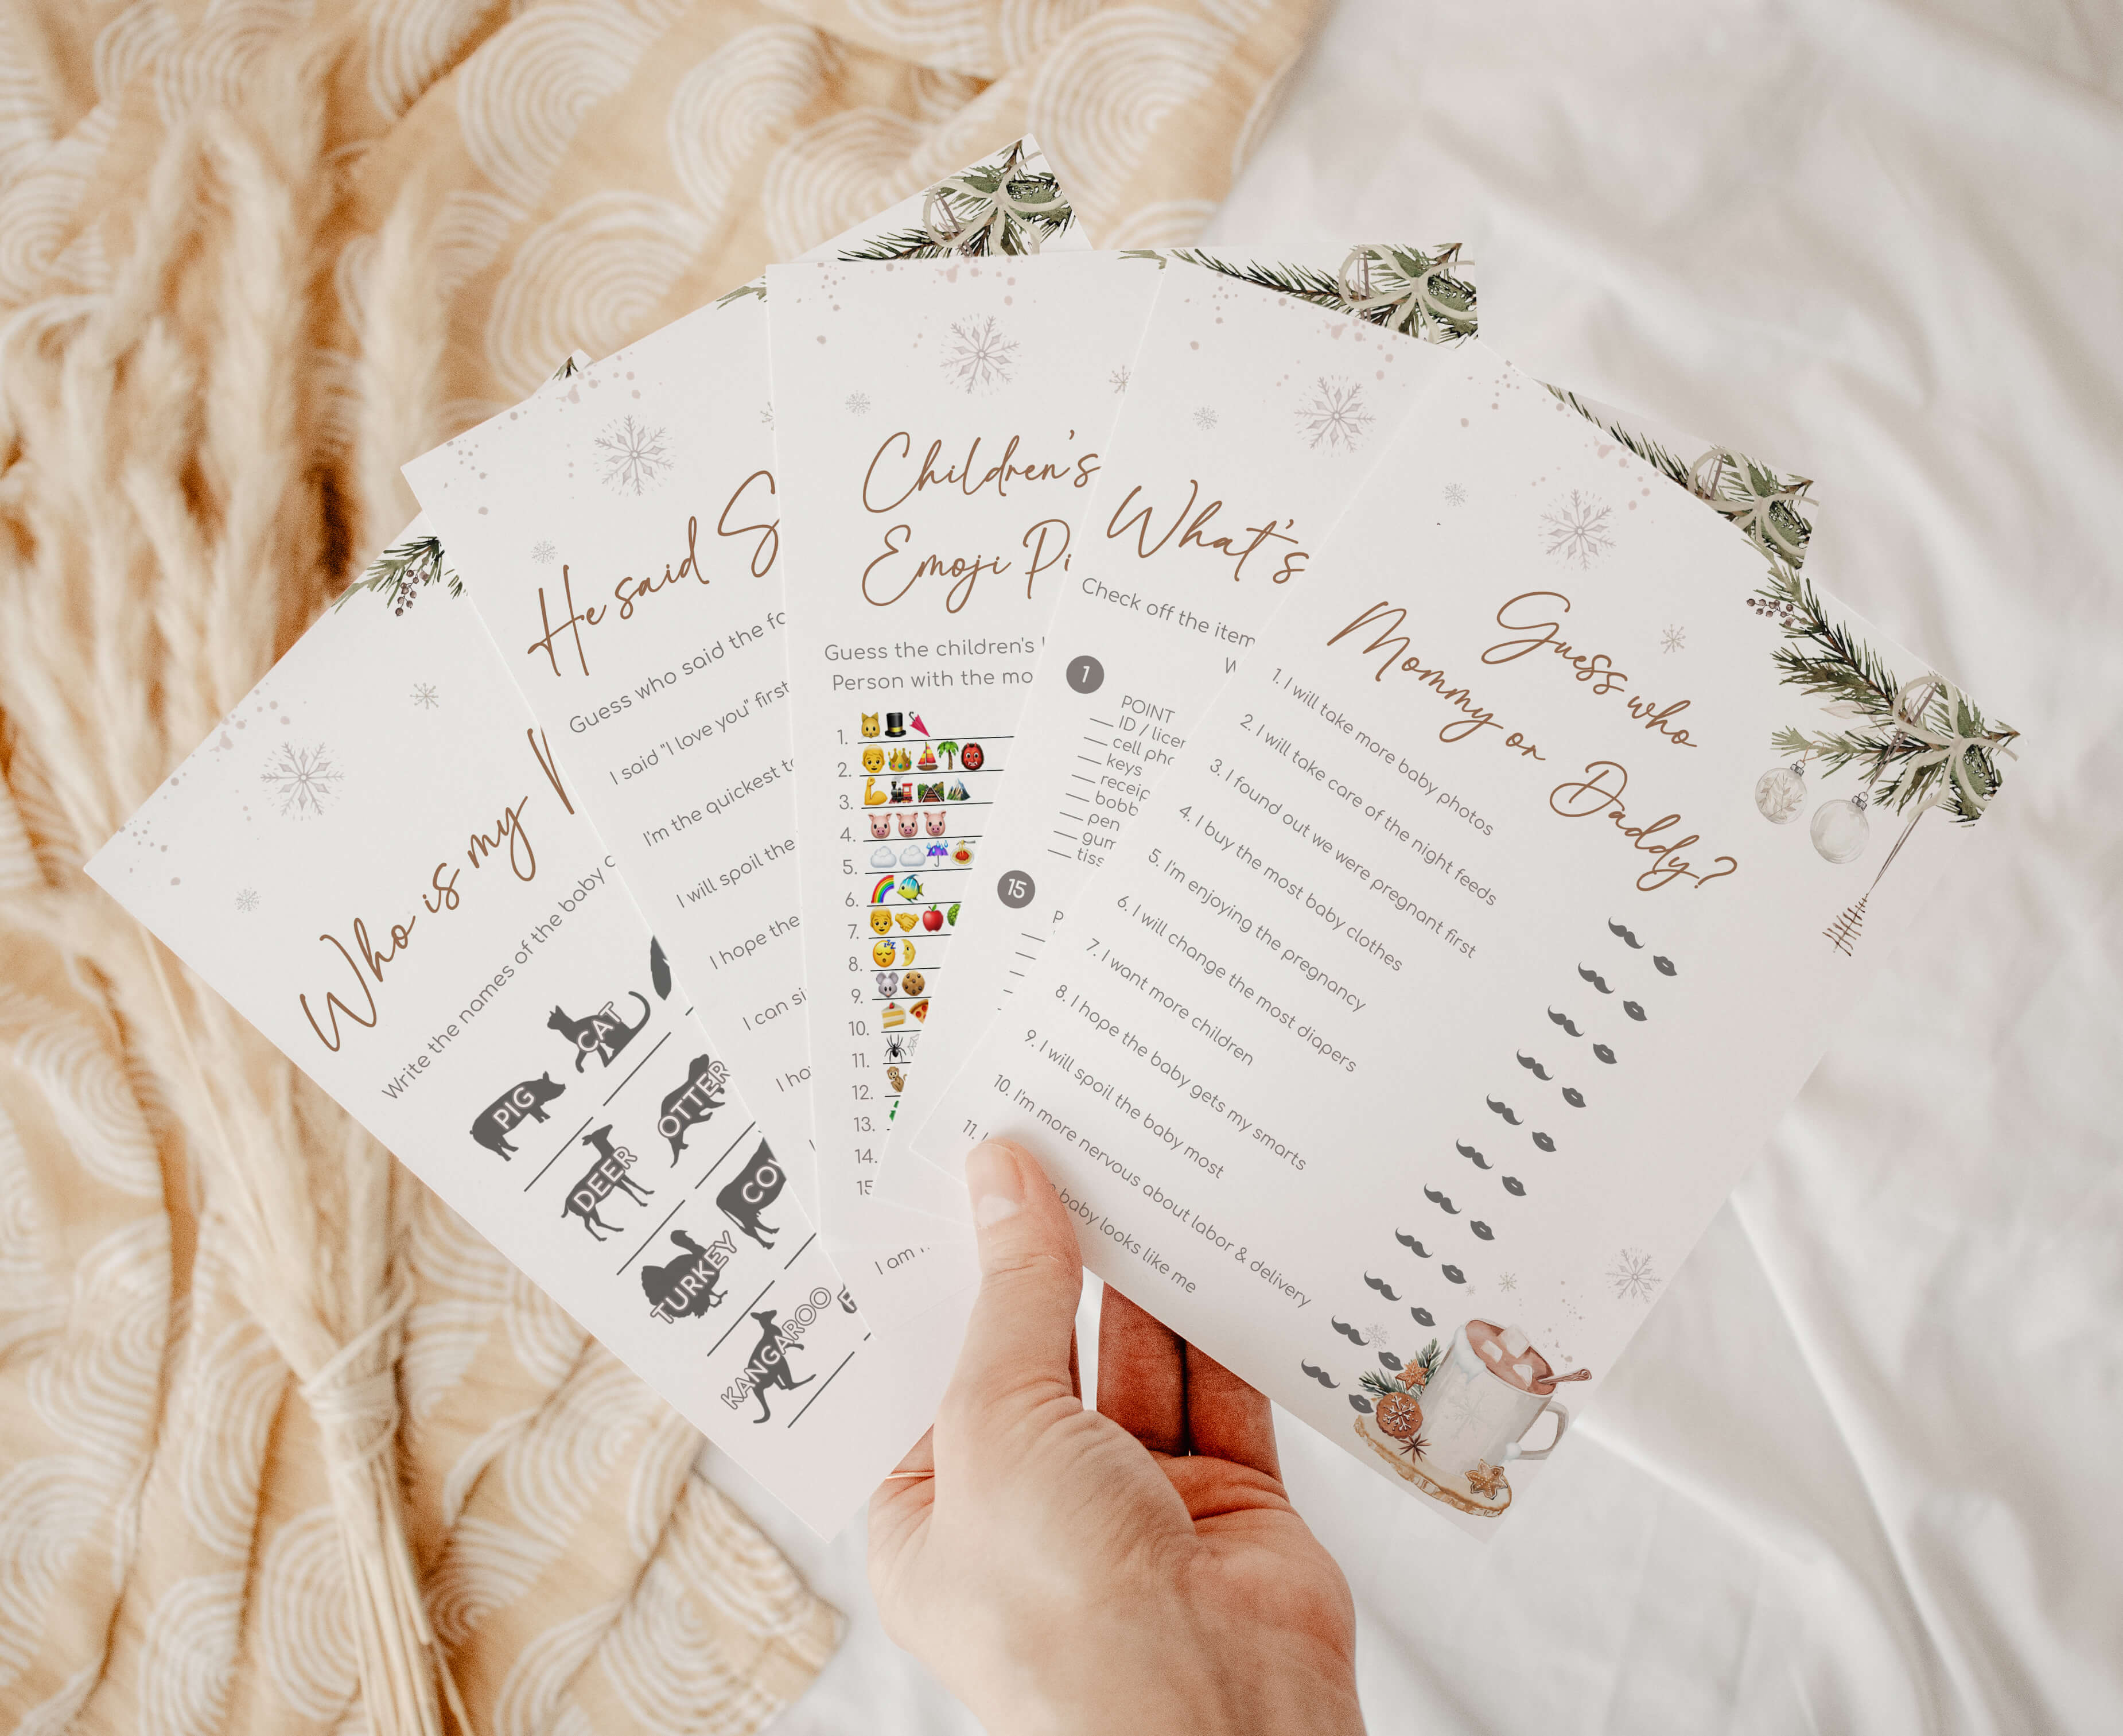 Who is my
Write the names of the baby
PIG
CAT
DEER
OTTER
TURKEY
CO
KANGAROO
He said S
Guess who said the fo
I said "I love you" first
I'm the quickest to
I will spoil the
I hope the
I can si
I ha
I am
Children's
Emoji Pi
Guess the children's
Person with the mo
1.
2.
3.
4.
5.
6.
7.
8.
9.
10.
11.
12.
13.
14.
15
What's
Check off the item
W
1
POINT
ID / licen
cell pho
keys
receip
bobb
pen
gum
tiss
15
P
Guess who
Mommy or Daddy?
1. I will take more baby photos
2. I will take care of the night feeds
3. I found out we were pregnant first
4. I buy the most baby clothes
5. I'm enjoying the pregnancy
6. I will change the most diapers
7. I want more children
8. I hope the baby gets my smarts
9. I will spoil the baby most
10. I'm more nervous about labor & delivery
11. I baby looks like me